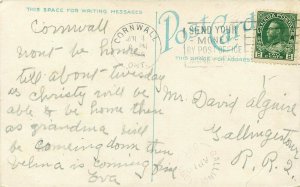 THIS SPACE FOR WRITING MESSAGES
Post Card
CORNWALL
ONT
SEND YOUR
MO
BY POST OFFICE
CANADA POSTAGE
THIS SPACE FOR ADDRESS
Cornwall
wont be home
till about tuesday
as christy will be
able to be home then
as grandma will
be coming down then
velma is coming fine
Eva
Mr David Alguire
Gallingertown
R.R.2.